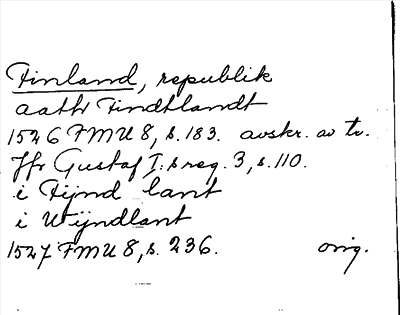 Finland, republik
aatht Findtlandt
1526 FMU 8, s. 183. avskr. av tr.
Jfr Gustaf I:s reg. 3, s. 110.
i Fijnd lant
i Wijndlant
1527 FMU 8, s. 236. orig.